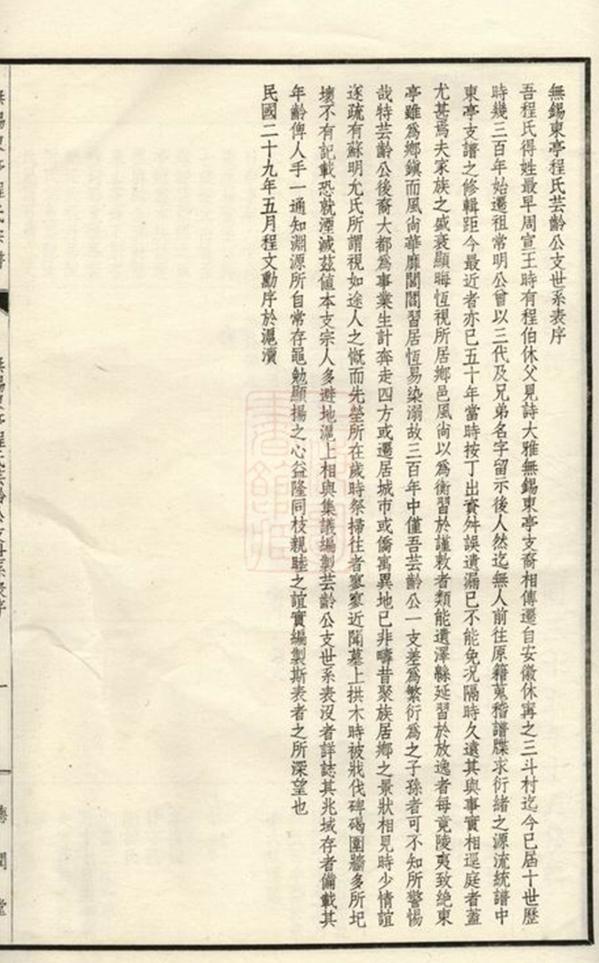 無錫東亭程氏芸齡公支世系表序
吾程氏得姓最早周宣王時有程伯休父見詩大雅無錫東亭支裔相傳遷自安徽休寧之三斗村迄今已屆十世歷
時幾三百年始遷祖常明公曾以三代及兄弟名字留示後人然迄無人前往原籍蒐稽譜牒求衍緒之源流統譜中
東亭支譜之修輯距今最近者亦已五十年當時按丁出賚舛誤遺漏已不能免况隔時久遠其與事實相逕庭者蓋
尤甚焉夫家族之盛衰顯晦恆視所居鄉邑風尚以爲衡習於謹敕者類能遺澤緜延習於放逸者每竟陵夷致絶東
亭雖爲鄉鎭而風尚華靡闤闠習居恆易染溺故三百年中僅吾芸齡公一支差爲繁衍爲之子孫者可不知所警惕
哉特芸齡公後裔大都爲事業生計奔走四方或遷居城市或僑寓異地已非疇昔聚族居鄉之景狀相見時少情誼
逐疏有蘇明允氏所謂視如途人之慨而先塋所在歲時祭掃往者寥寥近聞墓上拱木時被戕伐碑碣圍牆多所圮
壞不有記載恐就湮滅茲値本支宗人多避地滬上相與集議編製芸齡公支世系表沒者詳誌其兆域存者備載其
年齡俾人手一通知淵源所自常存黽勉顯揚之心益隆同枝親睦之誼實編製斯表者之所深望也
民國二十九年五月程文勳序於滬瀆
無錫東亭程氏宗譜
無錫東亭程氏芸齡公支世系表序
一
潤堂